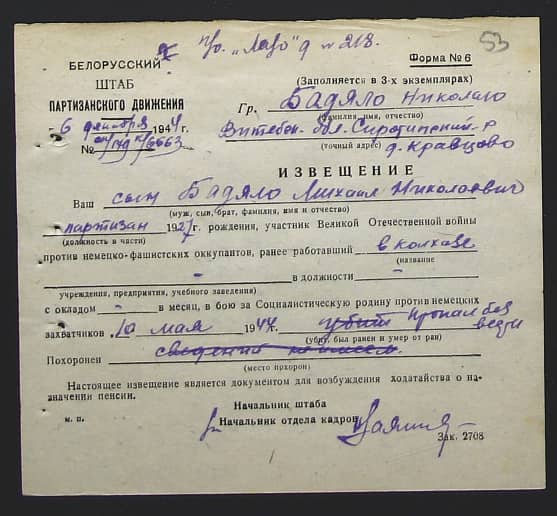 53
БЕЛОРУССКИЙ
ШТАБ
ПАРТИЗАНСКОГО ДВИЖЕНИЯ
6 декабря 1944 г.
№ 6663
Форма № 6
(Заполняется в 3-х экземплярах)
Гр. Бадяло Николаю
(фамилия, имя, отчество)
Витебск. обл. Сиротинский р
(точный адрес) д. Кравцово
ИЗВЕЩЕНИЕ
Ваш сын Бадяло Михаил Николаевич
(муж, сын, брат, фамилия, имя и отчество)
партизан 1927 г. рождения, участник Великой Отечественной войны
(должность в части)
против немецко-фашистских оккупантов, ранее работавший в колхозе
(название
– в должности –
учреждения, предприятия, учебного заведения)
с окладом – в месяц, в бою за Социалистическую родину против немецких
захватчиков 10 мая 1944 г. убит пропал без вести
(убит, был ранен и умер от ран)
Похоронен сведений не имеем.
(место похорон)
Настоящее извещение является документом для возбуждения ходатайства о на-
значении пенсии.
Начальник штаба
м. п. Начальник отдела кадров
Зак. 2708